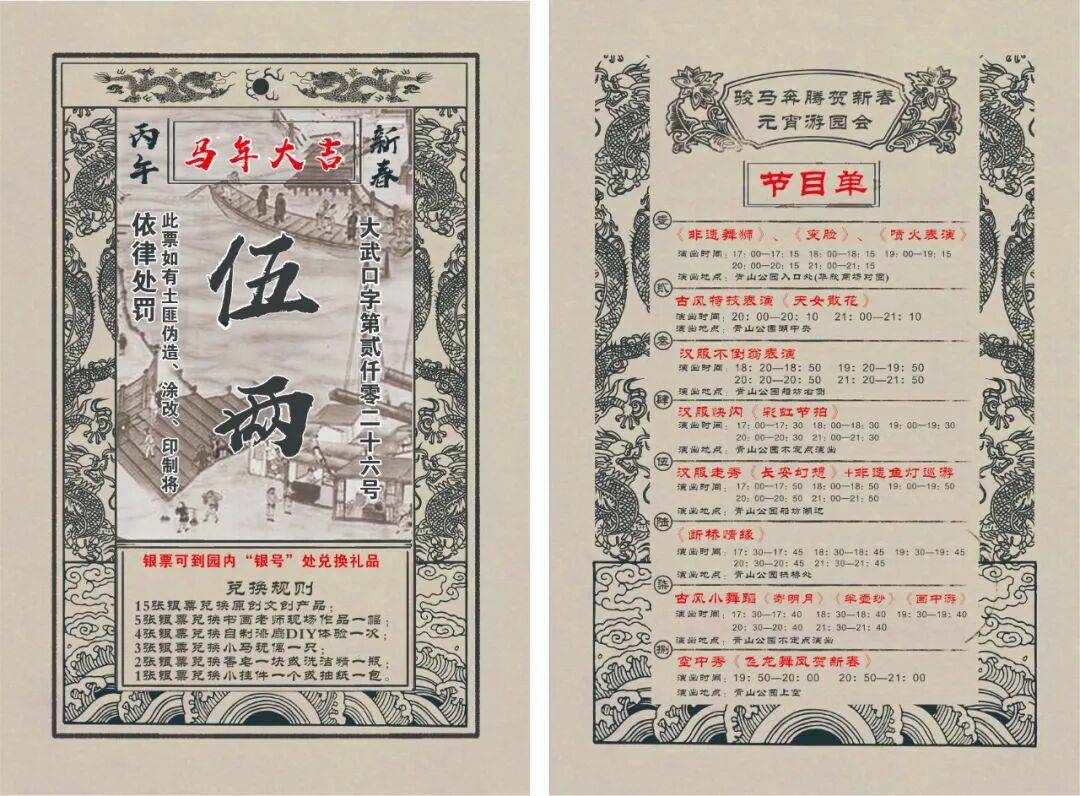 丙午
马年大吉
新春
大武口字第贰仟零二十六号
伍两
此票如有土匪伪造、涂改、印制将
依律处罚
银票可到园内“银号”处兑换礼品
兑换规则
15张银票兑换原创文创产品；
5张银票兑换书画老师现场作品一幅；
4张银票兑换自制漆扇DIY体验一次；
3张银票兑换小马玩偶一只；
2张银票兑换香皂一块或洗洁精一瓶；
1张银票兑换小挂件一个或抽纸一包。
骏马奔腾贺新春
元宵游园会
节目单
壹
《非遗舞狮》、《变脸》、《喷火表演》
演出时间：17：00—17：15 18：00—18：15 19：00—19：15
20：00—20：15 21：00—21：15
演出地点：青山公园入口处(华敦商场对面)
贰
古风特技表演《天女散花》
演出时间：20：00—20：10 21：00—21：10
演出地点：青山公园湖中央
叁
汉服不倒翁表演
演出时间：18：20—18：50 19：20—19：50
20：20—20：50 21：20—21：50
演出地点：青山公园船坊右侧
肆
汉服快闪《彩虹节拍》
演出时间：17：00—17：30 18：00—18：30 19：00—19：30
20：00—20：30 21：00—21：30
演出地点：青山公园不定点演出
伍
汉服走秀《长安幻想》+非遗鱼灯巡游
演出时间：17：00—17：50 18：00—18：50 19：00—19：50
20：00—20：50 21：00—21：50
演出地点：青山公园船坊湖边
陆
《断桥情缘》
演出时间：17：30—17：45 18：30—18：45 19：30—19：45
20：30—20：45 21：30—21：45
演出地点：青山公园拱桥处
柒
古风小舞蹈《寄明月》《半壶纱》《画中游》
演出时间：17：30—17：40 18：30—18：40 19：30—19：40
20：30—20：40 21：30—21：40
演出地点：青山公园不定点演出
捌
空中秀《飞龙舞凤贺新春》
演出时间：19：50—20：00 20：50—21：00
演出地点：青山公园上空